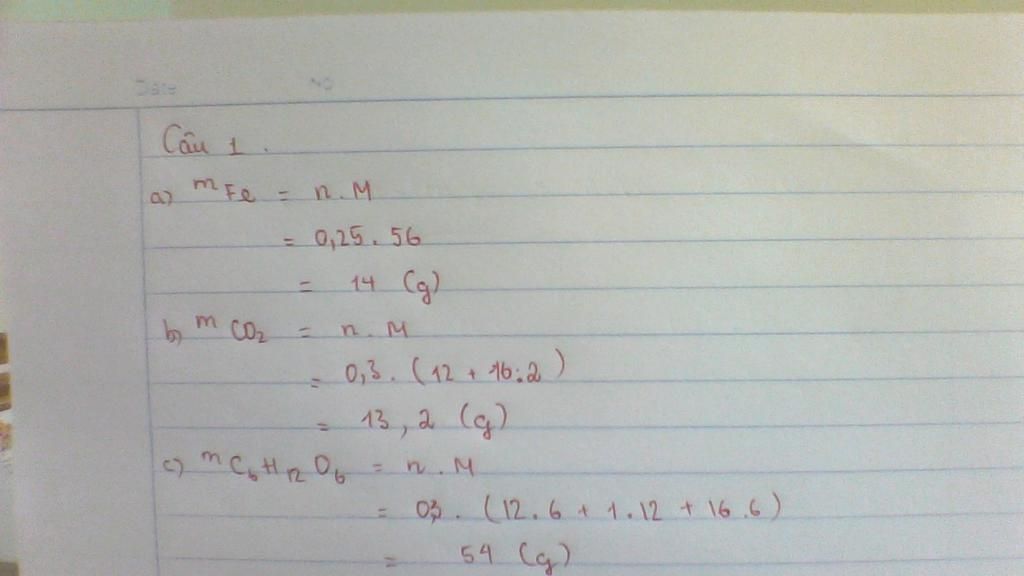 Date No
Câu 1.
a) mFe = n.M
= 0,25.56
= 14 (g)
b) mCO2 = n.M
= 0,3.(12 + 16:2)
= 13,2 (g)
c) mC6H12O6 = n.M
= 0,3.(12.6 + 1.12 + 16.6)
= 54 (g)